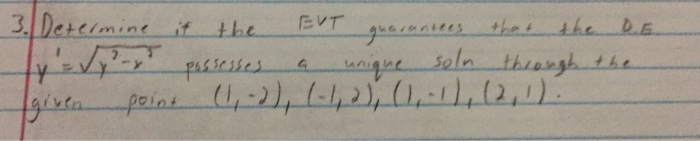 3. Determine if the EVT guarantees that the D.E.
y' = √y² - x² possesses a unique soln through the
given point (1,-2), (-1,2), (1,-1), (2,1).